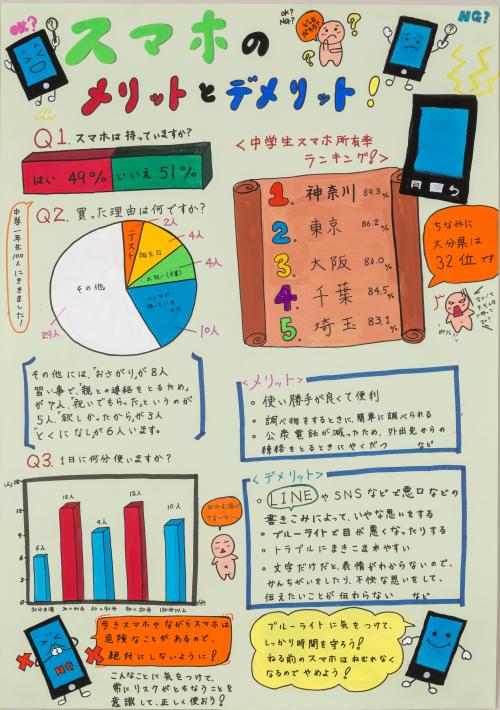 OK?
スマホの
OK?
NG?
どっちだろう?
NG?
メリットとデメリット!
Q1. スマホは持っていますか?
はい 49% いいえ 51%
<中学生スマホ所有率
ランキング!>
1. 神奈川 89.3%
2. 東京 86.2%
3. 大阪 86.0%
4. 千葉 84.5%
5. 埼玉 83.1%
ちなみに
大分県は
32位です
Q2. 買った理由は何ですか?
中学一年生100人にききました!
テスト
2人
誕生日
4人
お祝い(卒業)
4人
みんなが
持っている
から
10人
その他
29人
その他には、「おさがり」が8人
習い事で、「親との連絡をとるため」
が7人、「祝いでもらった」というのが
5人、「欲しかったから」が3人
「とくになし」が6人います。
<メリット>
使い勝手が良くて便利
調べ物をするときに、簡単に調べられる
公衆電話が減ったため、外出先からの
連絡をとるときにやくだつ など
Q3. 1日に何分使いますか?
(人)
15
12
9
6
3
0
6人
12人
9人
12人
10人
30分未満
30〜60分
60〜90分
90〜120分
120分以上
(分)
30分未満が
少ないな…
<デメリット>
LINEやSNSなどで悪口などの
書きこみによって、いやな思いをする
ブルーライトで目が悪くなったりする
トラブルにまきこまれやすい
文字だけだと、表情がわからないので、
かんちがいをしたり、不快な思いをして、
伝えたいことが伝わらない など
NG
歩きスマホやながらスマホは
危険なことがあるので、
絶対にしないように!
こんなことに気をつけて、
常にリスクがともなうことを
意識して、正しく使おう!
ブルーライトに気をつけて、
しっかり時間を守ろう!
ねる前のスマホはねむれなく
なるのでやめよう!